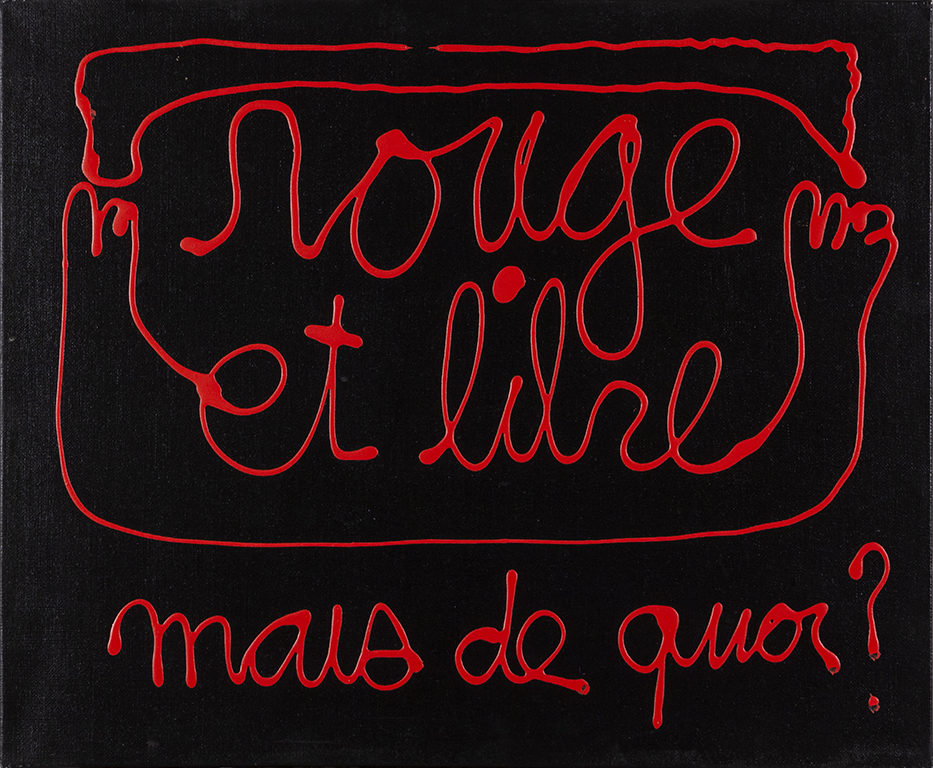 rouge
et libre
mais de quoi ?